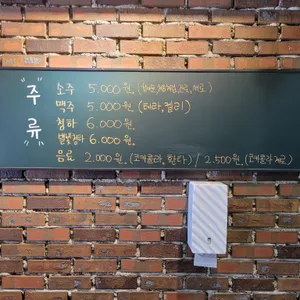 "주류"
소주 5.000원.
맥주 5.000원. (테라,켈리)
청하 6.000원.
별빛청하 6.000원.
음료 2.000원. (코카콜라, 환타) / 2.500원. (코카콜라 제로)